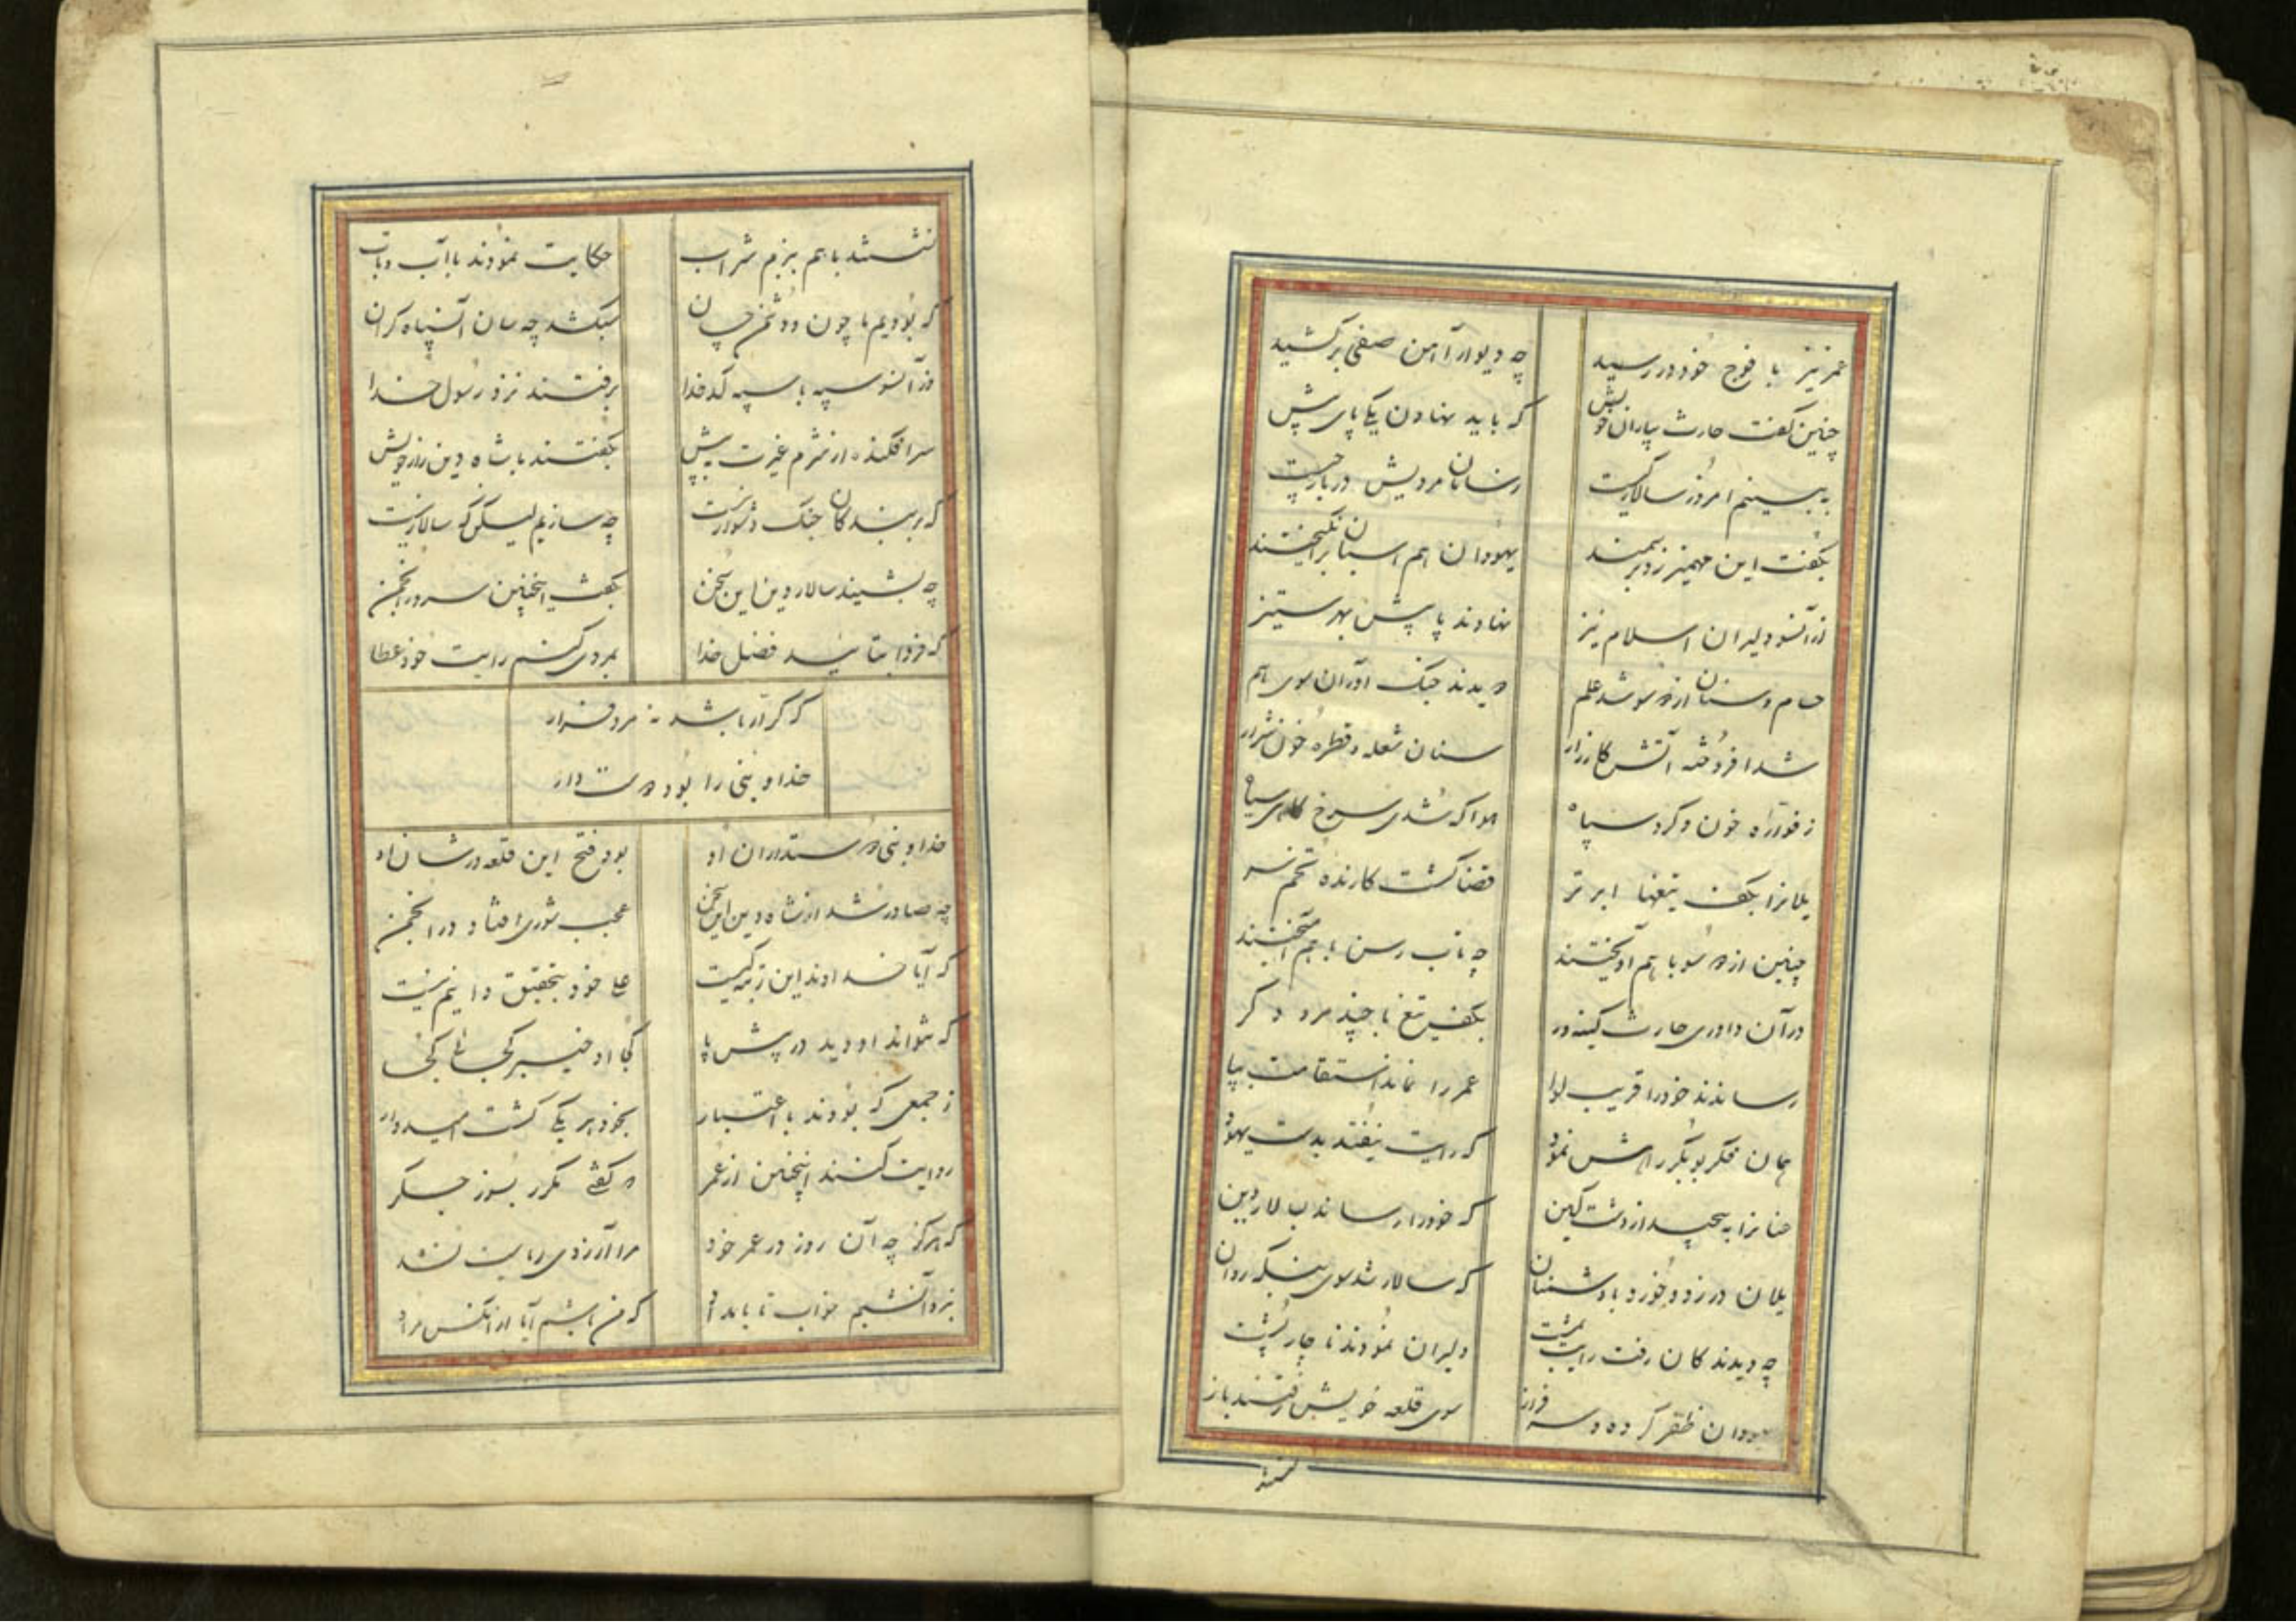 عمر نیز با فوج خود در رسید چو دیوار آهن صفی برکشید
چنین گفت حارث بیاران خویش که باید نهادن یکی پای پیش
ببینیم امروز سالار کیست
بگفت این و مهمیز زد بر سمند یهودان هم اسبان برانگیختند
زآنسو دلیران اسلام نیز نهادند پا پیش بهر ستیز
حسام و سنان از دو سو شد علم دویدند جنک آوران سوی هم
شد افروخته آتش کارزار سنان شعله و قطره خون شرار
ز فواره خون و کرد سپاه هوا که شدی سرخ کاهی سیاه
یلانرا بکف تیغها ابر تر قضا کشت کارنده تخم سر
چنین از دو سو با هم آویختند چو تاب رسن باهم آمیختند
در آن داوری حارث کینه ور بکف تیغ با چند مرد دکر
رساندند خود را قریب لوا عمر را نماند استقامت بپا
همان فکر بوبکر راهش نمود که رایت نیفتد بدست یهود
عنانرا به پیچید از دشت کین که خود را رساند بسالار دین
یلان در زد و خورد با دشمنان که سالار شد سوی بنکه روان
چو دیدند کان رفت رایت بمشت دلیران نمودند ناچار پشت
یهودان ظفر کرده و سرفراز سوی قلعه خویش رفتند باز
نشستند
نشستند باهم ببزم شراب حکایت نمودند با آب و تاب
که بودیم ما چون و دشمن چسان سبک شد چه سان آن سپاه کران
وز آنسو سپه با سپه کدخدا برفتند نزد رسول خدا
سرافکنده از شرم غیرت به پیش بگفتند با شاه دین راز خویش
که بر بندکان جنک دشوار نیست چه سازیم لیکن که سالار نیست
چو بشنید سالار دین این سخن بگفت اینچنین سرور انجمن
که فردا بتائید فضل خدا بمردی کنم رایت خود عطا
که کرار باشد نه مرد فرار
خدا و نبی را بود دوست دار
خدا و نبی دوستداران او بود فتح این قلعه در شان او
چو صادر شد از شاه دین این سخن عجب شوری افتاد در انجمن
که آیا خداوند این رتبه کیست علی خود بتحقیق دانیم نیست
که نتواند او دید در پیش پا کجا او خیبر کجا تا کجا
ز جمعی که بودند با اعتبار بخود هر یکی کشت امیدوار
روایت کنند اینچنین از عمر که کفتی مکرر بسوز جکر
که هرکز چو آن روز در عمر خود مرا آرزوی ریاست نشد
نبرد آنشبم خواب تا بامداد که من باشم آیا از آنکس مراد